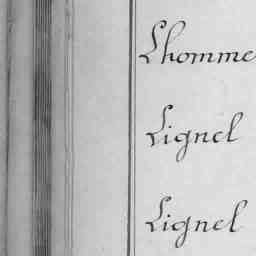 Lhomme
Lignel
Lignel